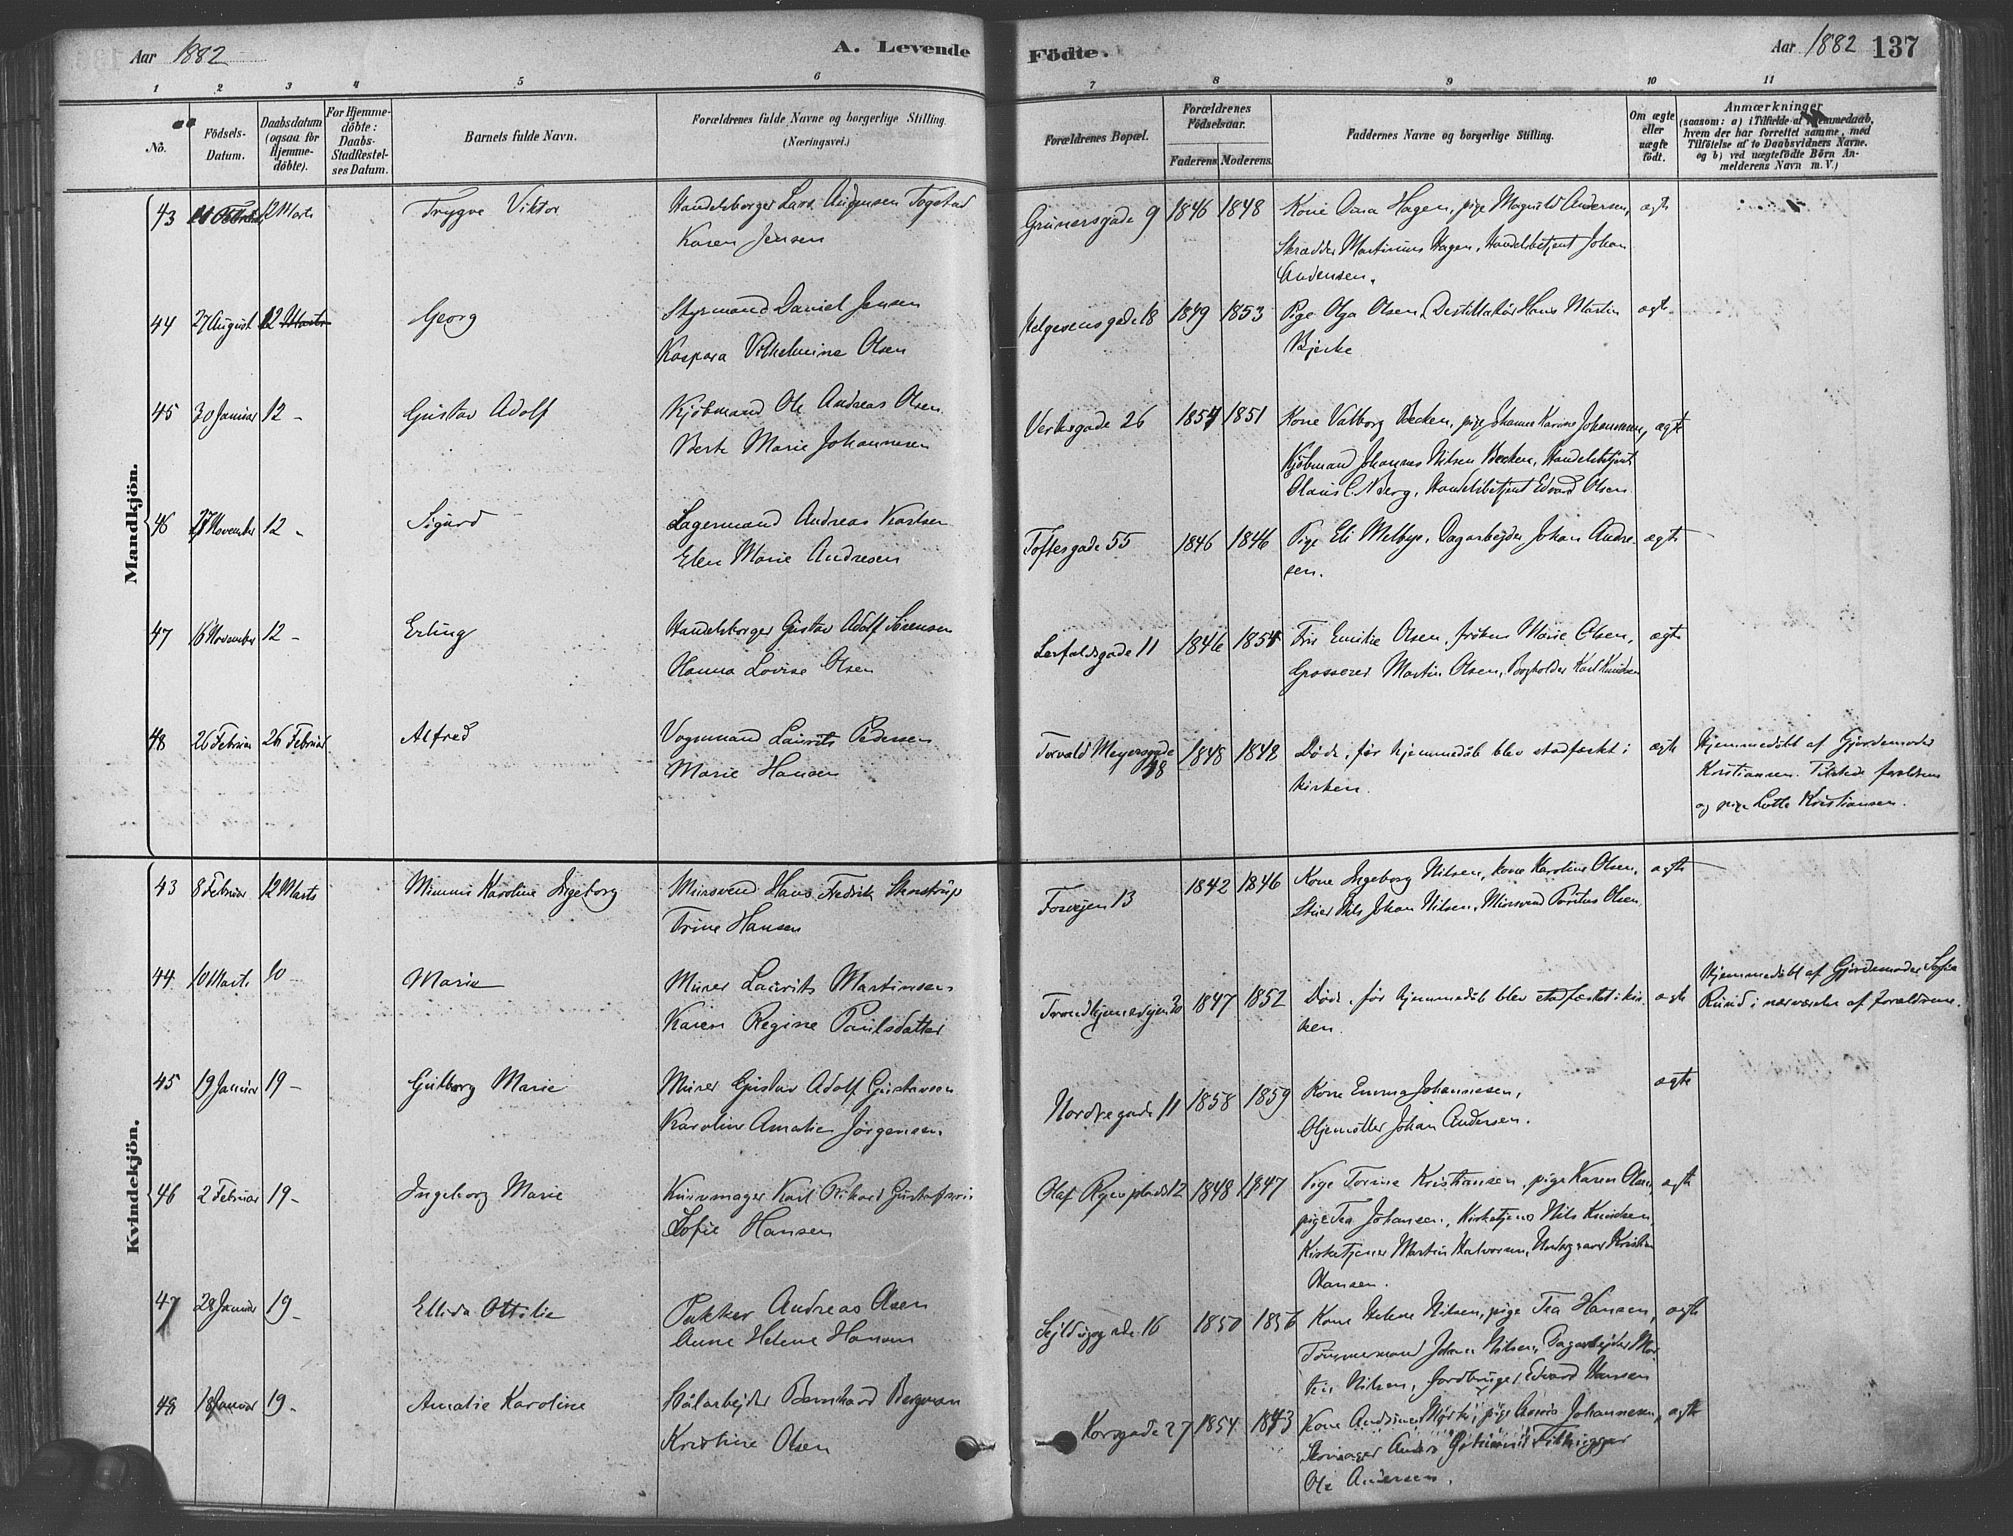 Aar 1882
A. Levende
Födte.
Aar 1882 137
1 2 3 4 5 6 7 8 9 10 11
No.
Födsels-
Datum.
Daabsdatum
(ogsaa for
Hjemme-
döbte).
For Hjemme-
döbte:
Daabs-
Stadfæstel-
ses Datum.
Barnets fulde Navn.
Forældrenes fulde Navne og borgerlige Stilling.
(Næringsvei.)
Forældrenes Bopæl.
Forældrenes
Födselsaar.
Faderens. Moderens.
Faddernes Navne og borgerlige Stilling.
Om ægte
eller
uægte
födt.
Anmærkninger
(saasom: a) i Tilfælde af Hjemmedaab,
hvem der har forrettet samme, med
Tilföielse af to Daabsvidners Navne.
og b) ved uægtefödte Börn An-
melderens Navn m. V.)
Mandkjön.
43 Februar 12 Marts Trygve Viktor Handelsborger Lars Togstad
Karen Jensen
Grünersgade 9 1846 1848 Kone Hagen, pige Magnild Andersen, ægte
Skrædder Martinius Hagen, Handelsbetjent Johan
Andersen.
44 27 August 12 Marts Georg Styrmand Daniel Jensen
Kaspara Vilhelmine Olsen
Helgesensgade 18 1849 1853 Pige Olga Olsen, Destillatör Hans Martin ægte
Bjerke
45 30 Januar 12 - Gustav Adolf Kjöbmand Ole Andreas Olsen
Berte Marie Johannesen
Verksgade 26 1851 Kone Valborg Becken, pige Karine Johannesen, ægte
Kjöbmand Johannes Nilsen Becken, Handelsbetjent
Olaus C. N. Berg, Handelsbetjent Edvard Olsen
46 27 November 12 - Sigurd Lagermand Andreas
Elen Marie Andresen
Toftesgade 55 1846 1846 Pige Eli Melbye, Dagarbejder Johan Andre- ægte
sen.
47 16 November 12 - Erling Handelsborger Gustav Adolf Sörensen
Hanna Lovise Olsen
Lerfaldsgade 11 1846 1854 Fru Emilie Olsen, fröken Marie Olsen, ægte
Grosserer Martin Olsen, Bogholder Karl Knudsen
48 26 Februar 26 Februar Alfred Vognmand Laurits Pedersen
Marie Hansen
Torvald Meyersgade 1848 1842 Döde, för hjemmedåb blev stadfæstet i ægte
kirken.
Hjemmedöbt af Gjordemoder
Kristiansen. Tilstede foreldrene
og pige Lotte Kristiansen.
Kvindekjön.
43 8 Februar 12 Marts Minnus Karoline Ingeborg Mursvend Hans Fredrik
Trine Hansen
Fossvejen 13 1842 1846 Kone Ingeborg Nilsen, kone Karoline Olsen, ægte
Nils Johan Nilsen, Mursvend Olsen
44 10 Marts 10 - Marie Murer Laurits Martinsen
Karen Regine Paulsdatter
Trondhjemsvejen 30 1847 1852 Döde, för hjemmedåb blev stadfæstet i kir- ægte
ken.
Hjemmedöbt af Gjordemoder Sofie
Rund i nærværelse af foreldrene.
45 19 Januar 19 - Gulborg Marie Murer Gustav Adolf Gustavsen
Karoline Amalie Jörgensen
Nordregade 11 1858 1859 Kone Emma Johannesen, ægte
Oljemöller Johan Andersen.
46 2 Februar 19 - Ingeborg Marie Karl Rikard Gustafsen
Sofie Hansen
Olaf Ryes plads 12 1848 1847 Pige Torine Kristiansen, pige Karen Olsen, ægte
pige Tea Johansen, Kirketjener Nils Knudsen,
Kirketjener Martin Halvorsen, Kristian
Hansen.
47 28 Januar 19 - Ellida Ottilie Pakker Andreas Olsen
Anne Helene Hansen
Sejldugsgade 16 1850 1856 Kone Helene Nilsen, pige Tea Hansen, ægte
Tömmermand Johan Nilsen, Dagarbejder Mar-
tin Nilsen, Jordbruger Edvard Hansen
48 18 Januar 19 - Amalie Karoline Stålarbejder Bernhard Bergman
Kristine Olsen
Korsgade 27 1854 1853 Kone pige Johannesen, ægte
Ole Andersen.